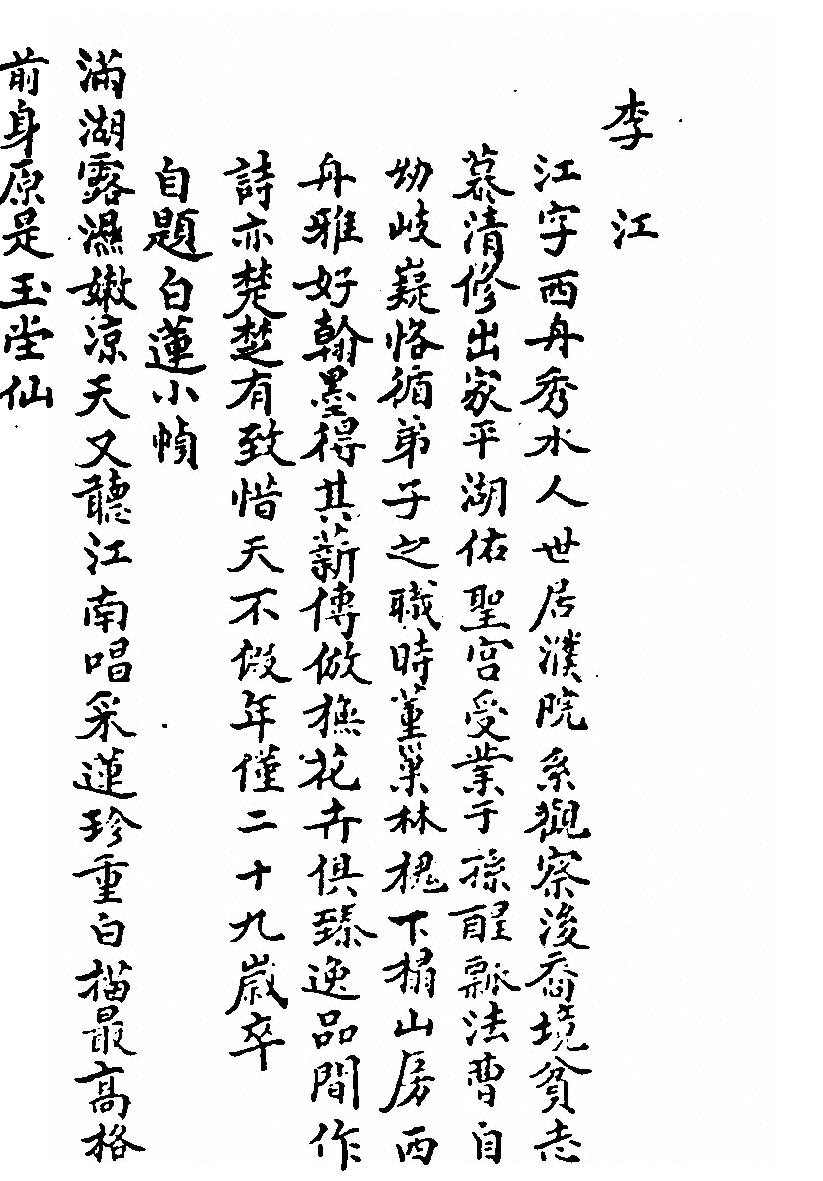 李江
江字西舟秀水人世居濮院系觀察浚裔境貧志
慕清修出家平湖佑聖宮受業于孫醒瓢法曹自
幼岐嶷恪循弟子之職時董巢林槐下榻山房西
舟雅好翰墨得其薪傳倣橅花卉俱臻逸品間作
詩亦楚楚有致惜天不假年僅二十九歲卒
自題白蓮小幀
滿湖露濕嫩涼天又聽江南唱采蓮珍重白描最高格
前身原是玉堂仙